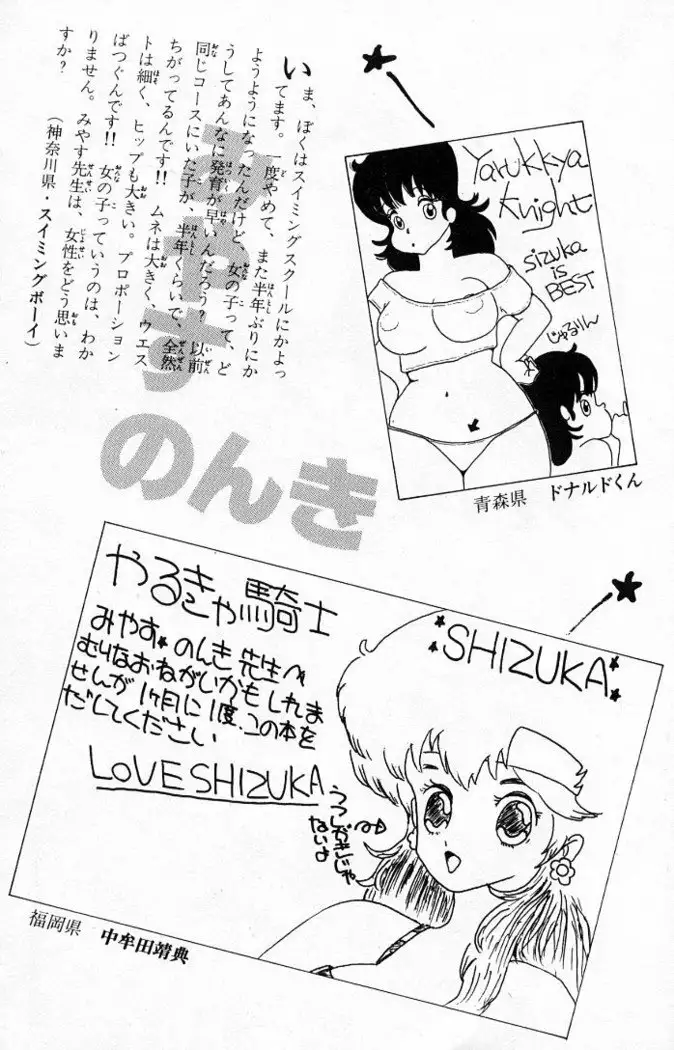 いま、ぼくはスイミングスクールにかよっ
てます。一度やめて、また半年ぶりにか
ようようになったんだけど、女の子って、ど
うしてあんなに発育が早いんだろう? 以前
同じコースにいた子が、半年くらいで、全然
ちがってるんです!! ムネは大きく、ウエス
トは細く、ヒップも大きい。プロポーション
ばつぐんです!! 女の子っていうのは、わか
りません。みやす先生は、女性をどう思いま
すか?
(神奈川県・スイミングボーイ)
みやす
のんき
Yarukkya
Knight
sizuka
is
BEST
じゃるりん
青森県 ドナルドくん
やるきゃ騎士
みやす。のんき先生へ
むりなおねがいかもしれま
せんが1ヶ月に1度、この本を
だしてください
LOVE SHIZUKA
SHIZUKA
うつしがきじゃ
ないよ
福岡県 中牟田靖典